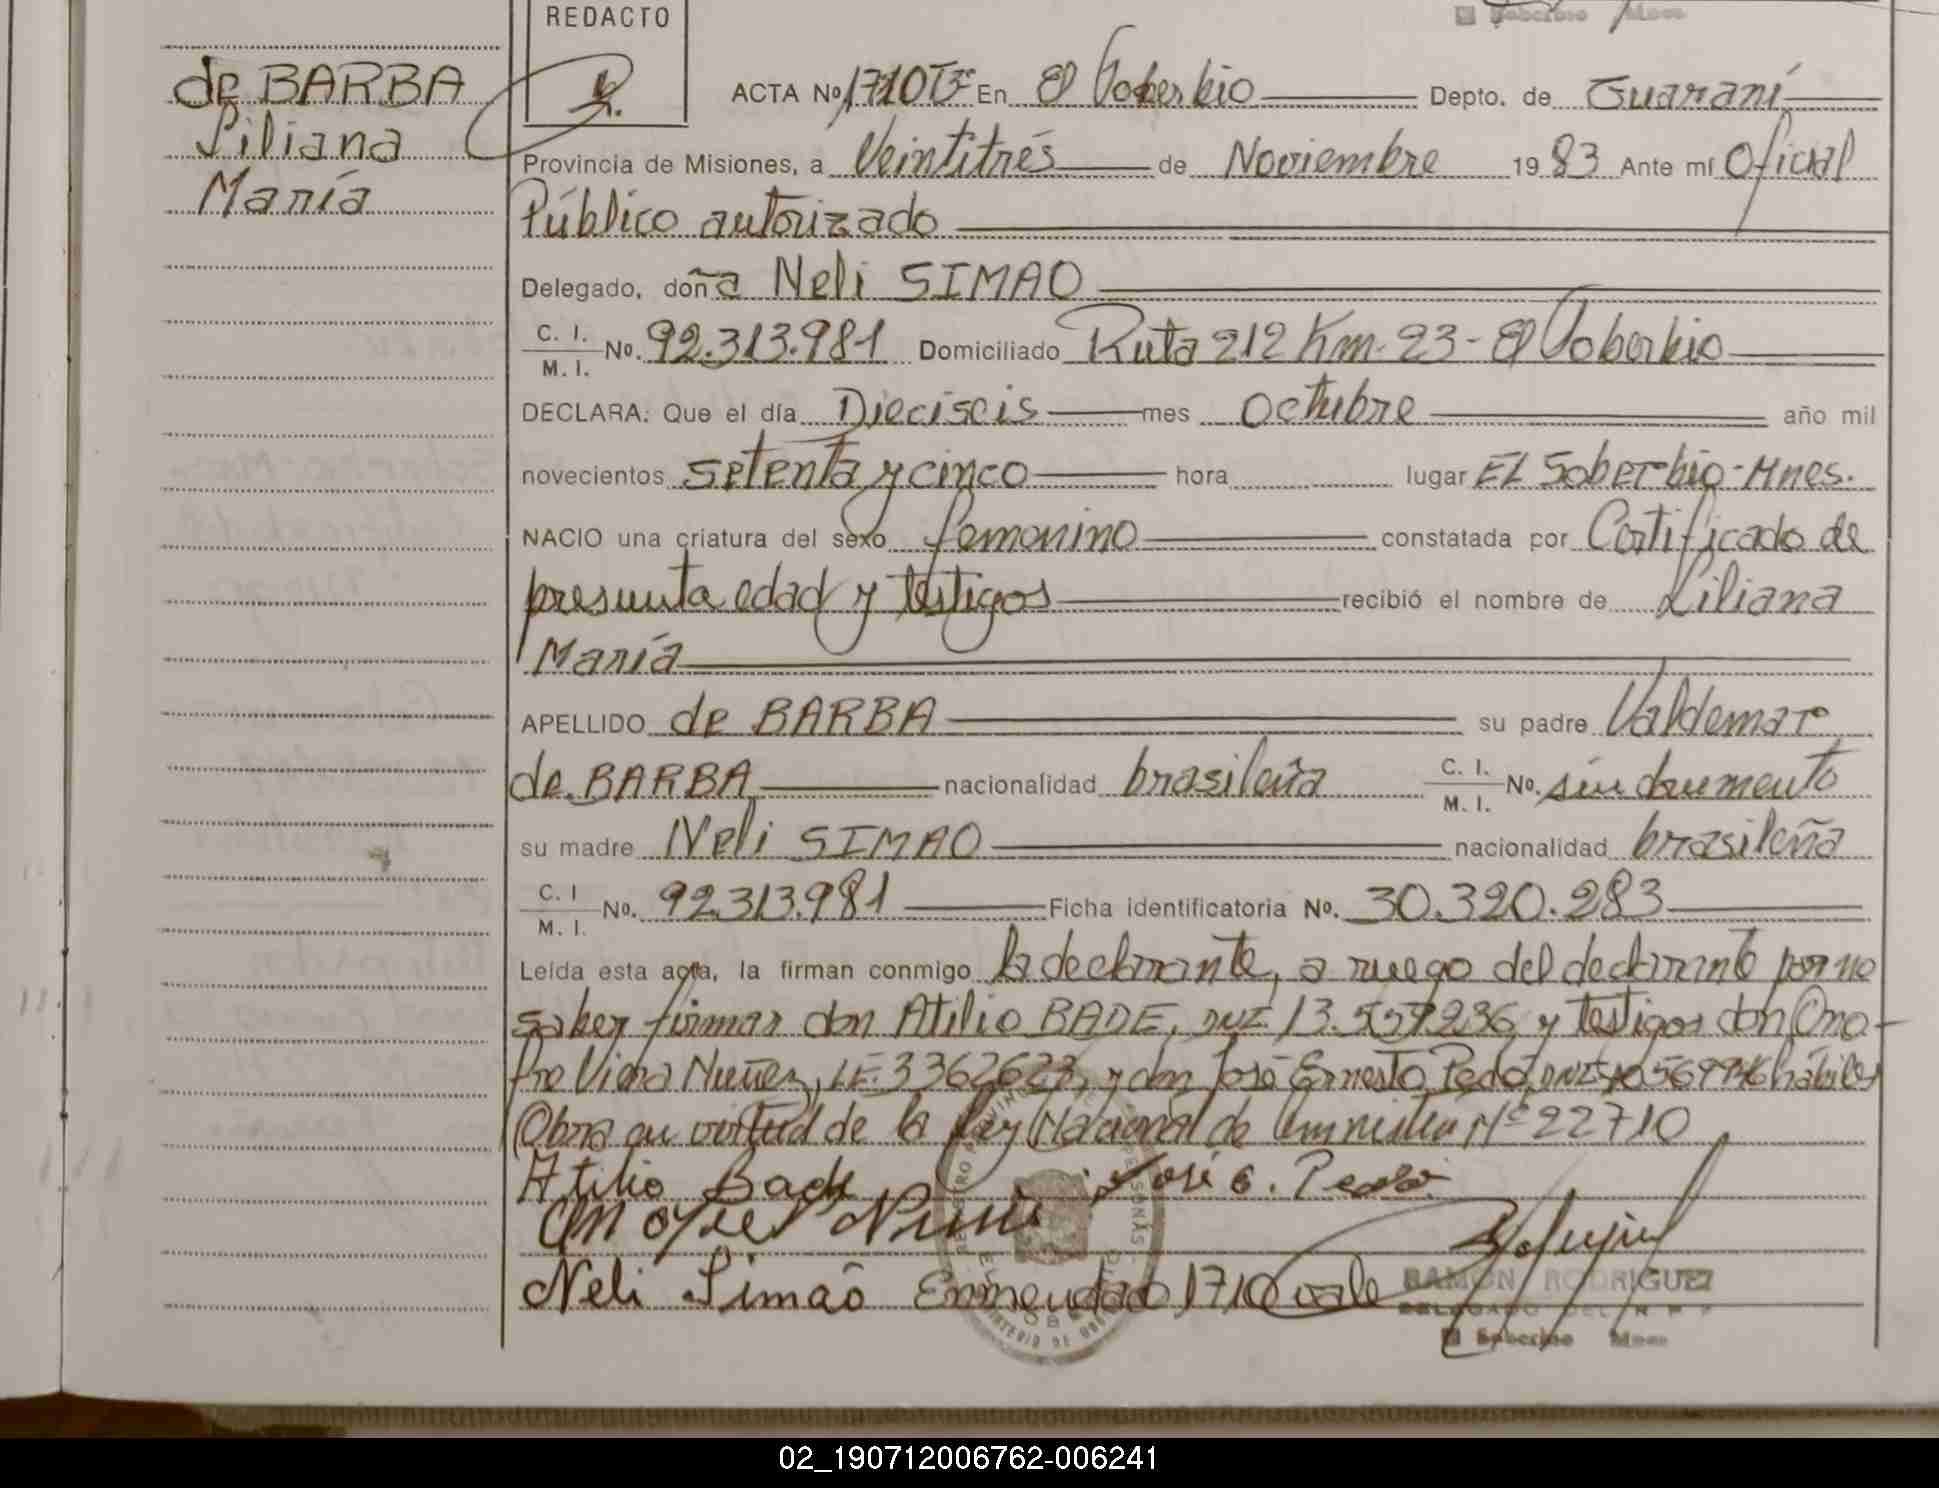 REDACTO
de BARBA
Liliana
María
ACTA Nº 1710 Tº En El Soberbio Depto. de Guaraní
Provincia de Misiones, a Veintitrés de Noviembre 19 83 Ante mí Oficial
Público autorizado
Delegado, doña Neli SIMAO
C. I. M. I. No. 92.313.981 Domiciliado Ruta 212 Km. 23 - El Soberbio
DECLARA: Que el día Dieciseis mes Octubre año mil
novecientos setenta y cinco hora lugar EL Soberbio - Mnes.
NACIO una criatura del sexo femenino constatada por Certificado de
presunta edad y testigos recibió el nombre de Liliana
María
APELLIDO de BARBA su padre Valdemar
de BARBA nacionalidad brasileña C. I. M. I. No. sin documento
su madre Neli SIMAO nacionalidad brasileña
C. I M. I. No. 92.313.981 Ficha identificatoria No. 30.320.283
Leída esta acta, la firman conmigo la declarante, a ruego del declarante por no
saber firmar don Atilio BADE, DNI. 13.559.236, y testigos don Ono-
fre Viera Nuñez, LE. 3362623, y don José Ernesto Pedó, DNI hábiles
Obra en virtud de la Ley Nacional de Amnistia Nº 22710
Atilio Bade José E. Pedó
Nuñe
Neli Simaõ Enmendado 1710 vale
RAMON RODRIGUEZ
DELEGADO DEL R P P
El Soberbio Mnes
02_190712006762-006241